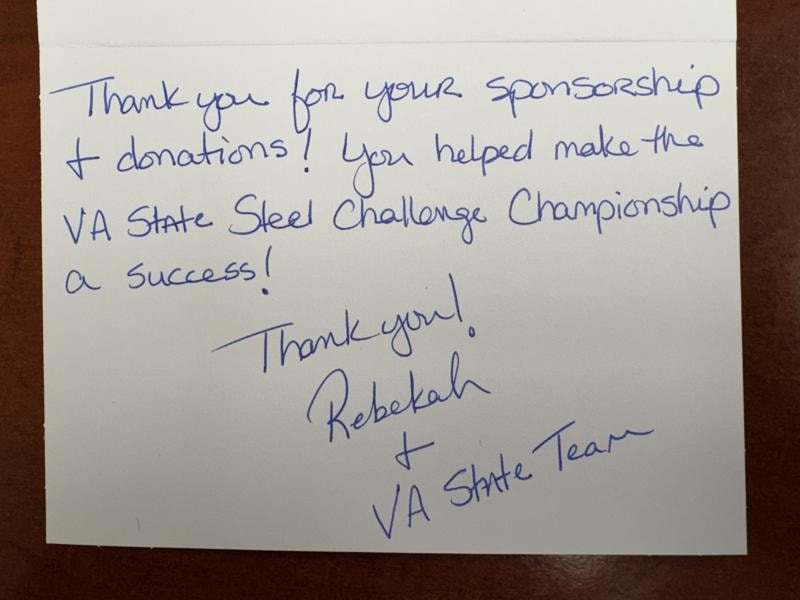 Thank you for your sponsorship
+ donations! You helped make the
VA State Steel Challenge Championship
a success!
Thank you!
Rebekah
+
VA State Team